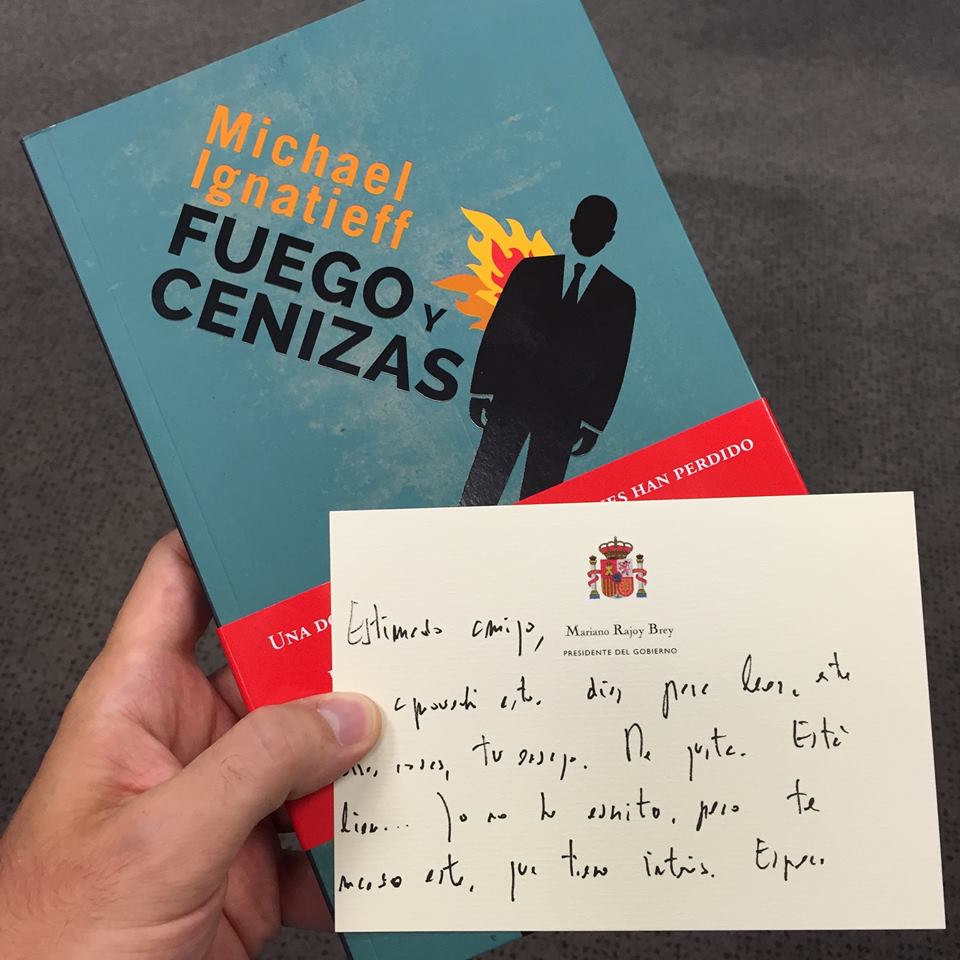 Michael
Ignatieff
FUEGO Y
CENIZAS
HAN PERDIDO
UNA
Mariano Rajoy Brey
PRESIDENTE DEL GOBIERNO
Estimado amigo,
aproveché estos días para leer, entre
otras cosas, tu ensayo. Me gusta. Está
bien... Yo no he escrito, pero te
mando este, que tiene interés. Espero